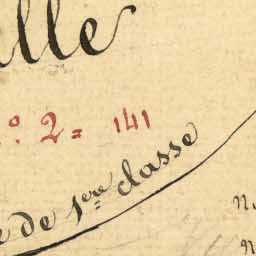 lle
º. 2= 141
e de 1ère classe
n.
n.